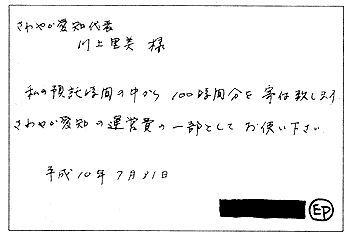 さわやか愛知代表
川上里美 様
私の預託時間の中から 100時間分を 寄付致します
さわやか愛知の運営費の一部として お使い下さい
平成10年7月31日
EP